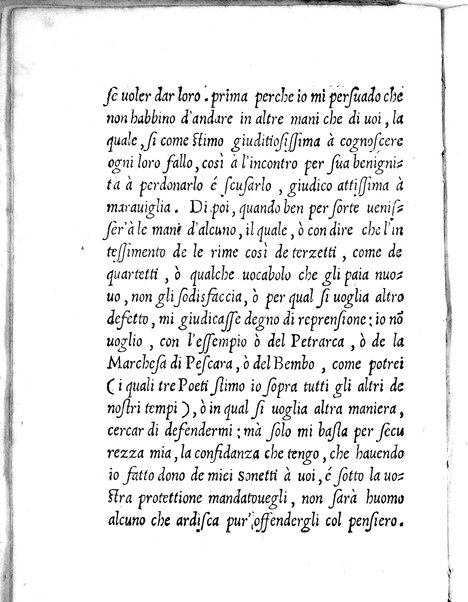 ſe uoler dar loro . prima perche io mi perſuado che
non habbino d'andare in altre mani che di uoi , la
quale , ſi come ſtimo giuditioſiſſima à cognoſcere
ogni loro fallo, così à l'incontro per ſua benigni-
tà à perdonarlo é ſcuſarlo , giudico attiſſima à
marauiglia . Di poi, quando ben per ſorte ueniſ-
ſer'à le mane d'alcuno, il quale , ò con dire che l'in
teſſimento de le rime così de terzetti , come de
quartetti , ò qualche uocabolo che gli paia nuo-
uo, non gli ſodisfaccia, ò per qual ſi uoglia altro
defetto, mi giudicaſſe degno di reprenſione; io nõ
uoglio , con l'eſſempio ò del Petrarca , ò de la
Marcheſa di Peſcara, ò del Bembo , come potrei
( i quali tre Poeti ſtimo io ſopra tutti gli altri de
noſtri tempi ), ò in qual ſi uoglia altra maniera,
cercar di defendermi ; mà ſolo mi baſta per ſecu
rezza mia, la confidanza che tengo, che hauendo
io fatto dono de miei Sonetti à uoi, é ſotto la uo-
ſtra protettione mandatouegli, non ſarà huomo
alcuno che ardiſca pur' offendergli col penſiero.